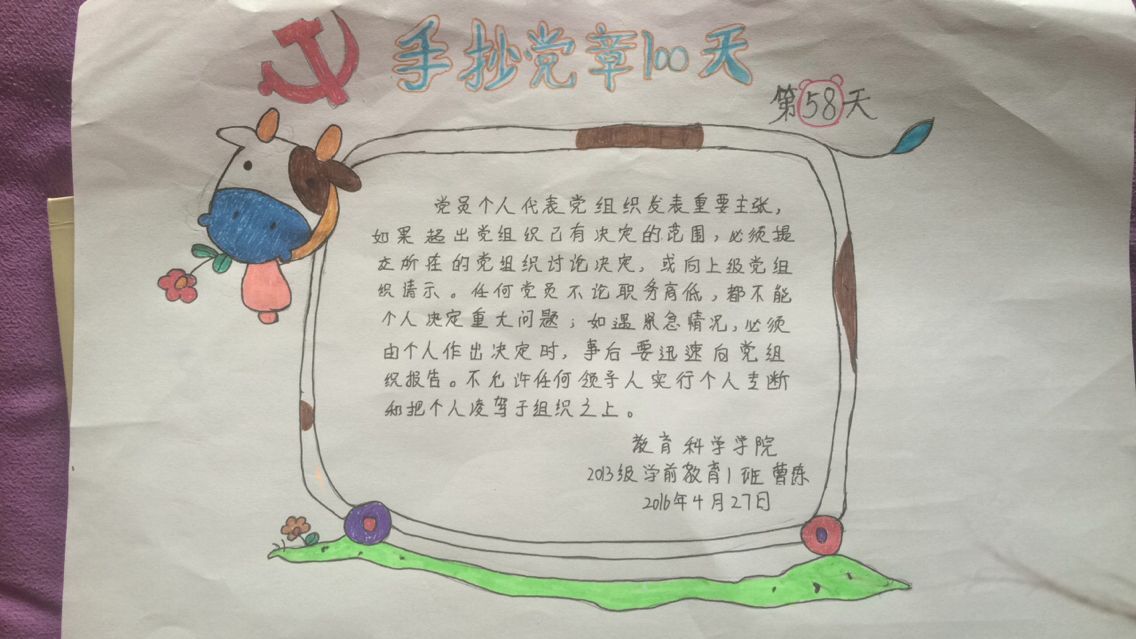 手抄党章100天
第58天
党员个人代表党组织发表重要主张，
如果超出党组织已有决定的范围，必须提
交所在的党组织讨论决定，或向上级党组
织请示。任何党员不论职务高低，都不能
个人决定重大问题；如遇紧急情况，必须
由个人作出决定时，事后要迅速向党组
织报告。不允许任何领导人实行个人专断
和把个人凌驾于组织之上。
教育科学学院
2013级学前教育1班 曹
2016年4月27日